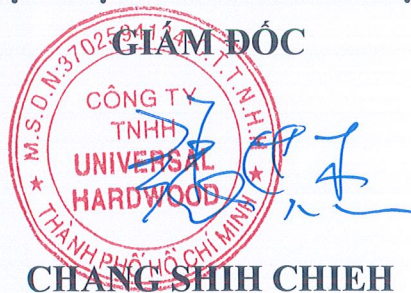 GIÁM ĐỐC
M.S.D.N:3702594
T.T.N.H.H
CÔNG TY
TNHH
UNIVERSAL
HARDWOOD
THÀNH PHỐ HỒ CHÍ MINH
CHANG SHIH CHIEH